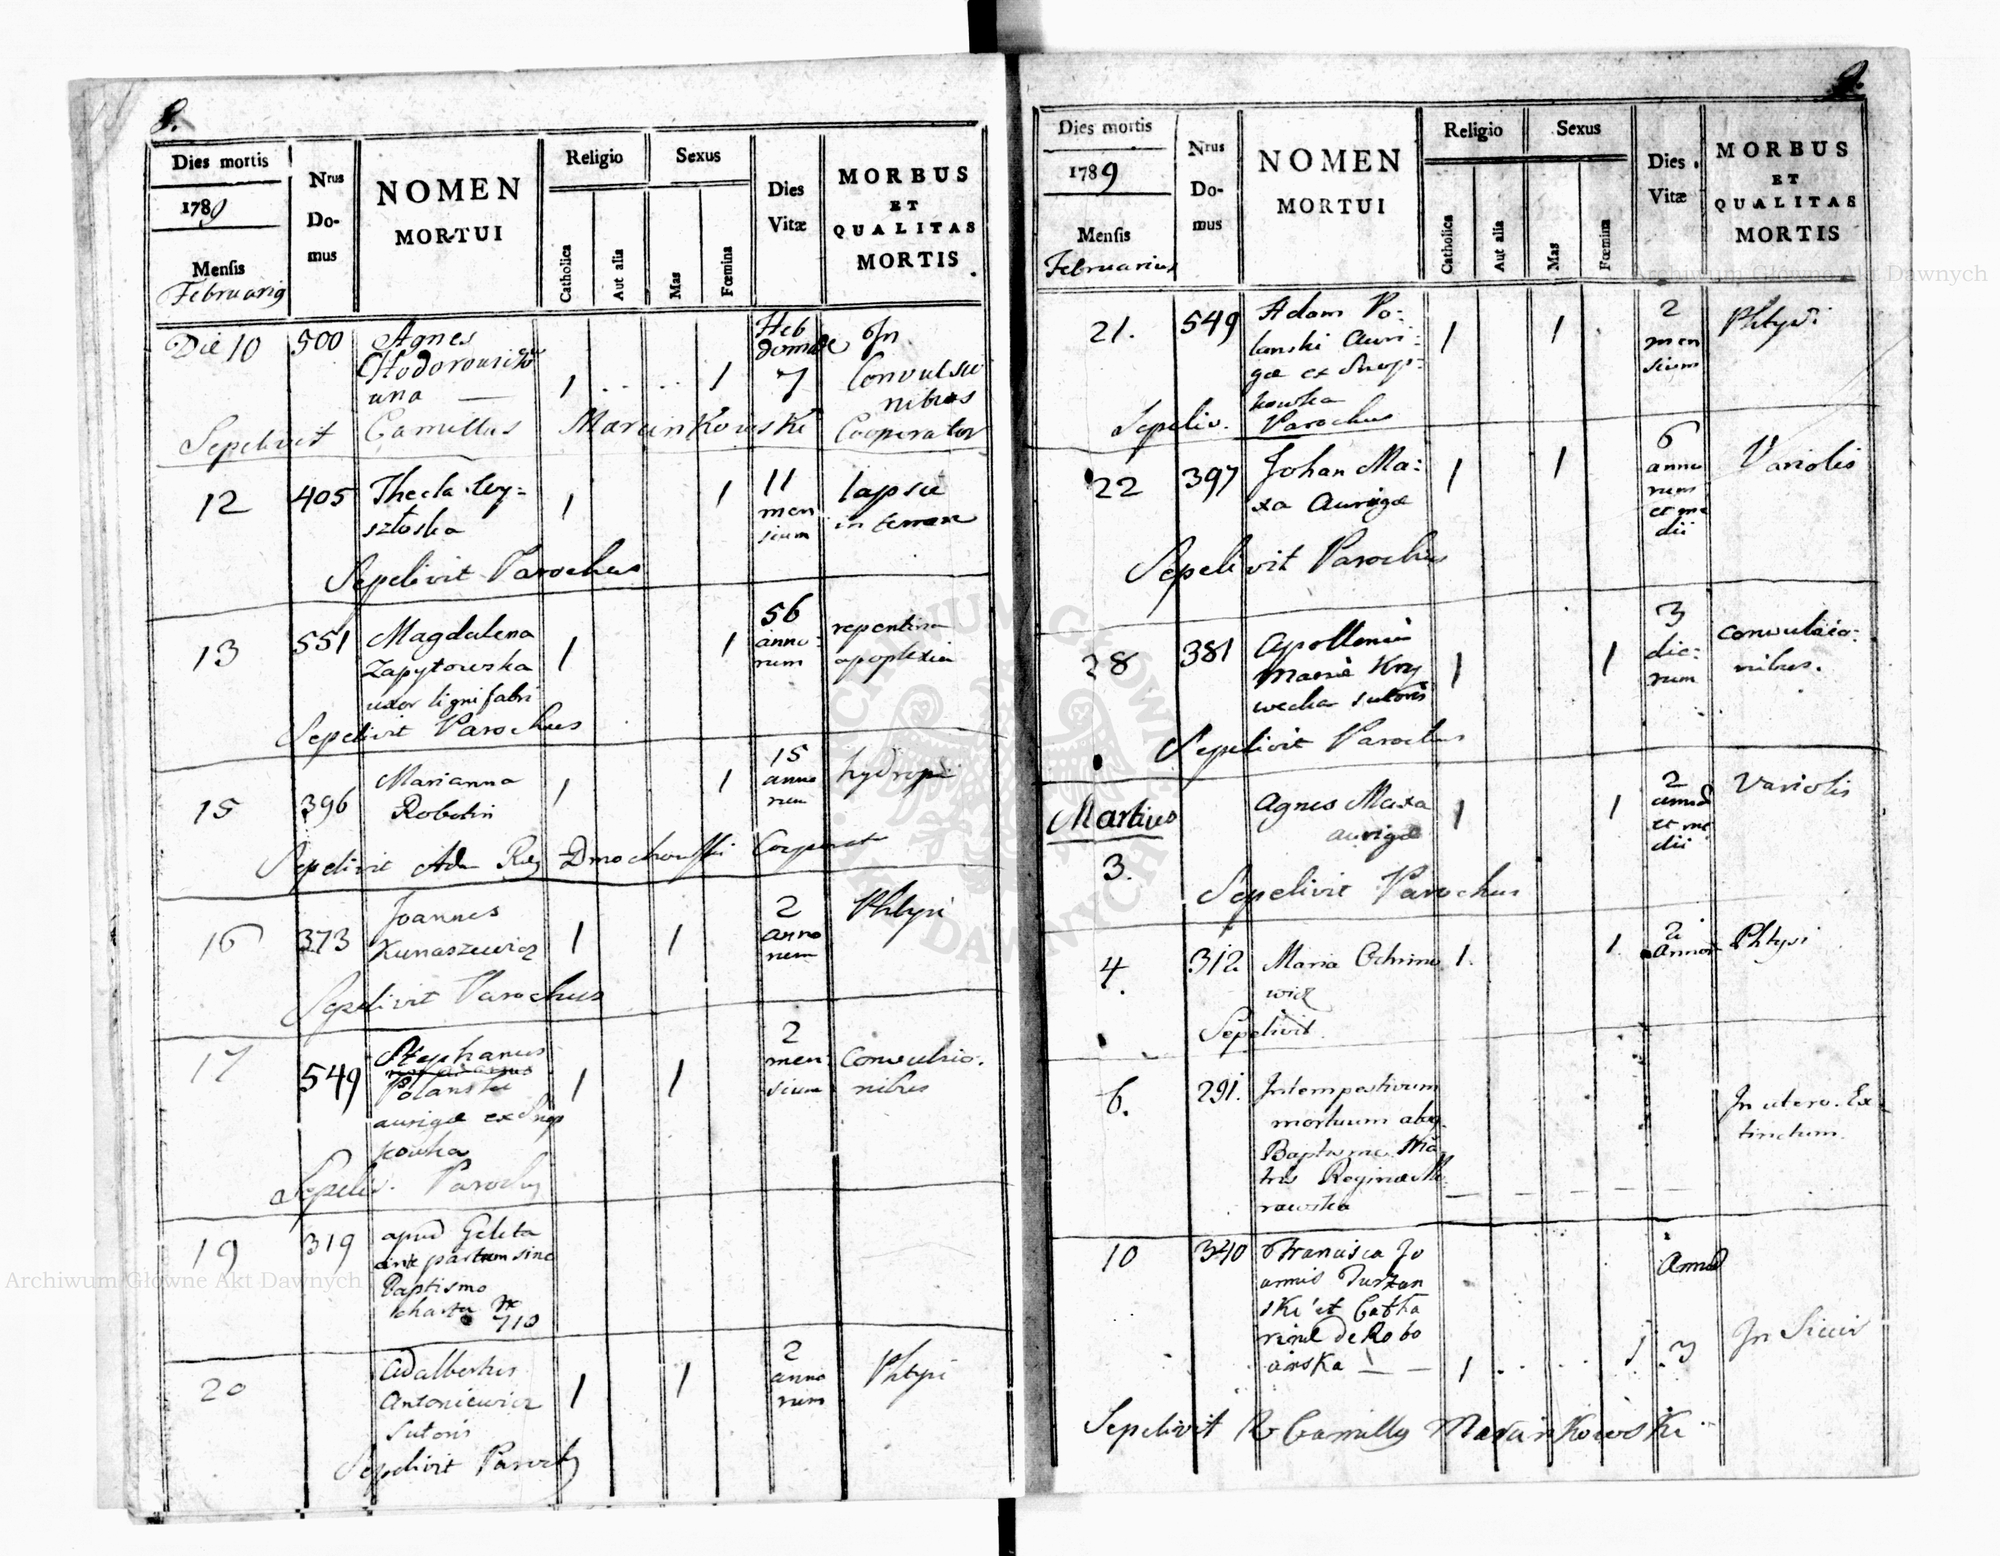 8.
Dies mortis
1789
Mensis
Februarig
Nrus
Do-
mus
NOMEN
MORTUI
Religio
Catholica
Aut alia
Sexus
Mas
Fœmina
Dies
Vitæ
MORBUS
ET
QUALITAS
MORTIS
Die 10 500 Agnes
una 1 1 7
Heb
domade
In
Convulsio
nibus
Sepelivit Camillus Marcinkowski Cooperator
12 405 Thecla Wy=
sztoska 1 1
11
men
sium
lapsu
in terram
Sepelivit Parochus
13 551 Magdalena
Zapytowska
uxor lignifabri 1 1
56
anno-
rum
repentina
apoplexia
Sepelivit Parochus
15 396 Marianna
Robotin 1 1
15
anno
rum
hydropi
Sepelivit Dmochowski
16 373 Joannes
Kunaszewicz 1 1
2
anno
rum
Phtysi
Sepelivit Parochus
17 549 Stephanus
Polanski
aurigæ ex Snop
kowka 1 1
2
men
sium
Convulsio.
nibus
Sepeliv. Parochus
19 319 apud Geleta
ante partum sine
Baptismo
charta Nro
710
20 Adalbertus
Antoniewicz
Sutoris 1 1
2
anno
rum
Phtysi
Sepelivit Parochg
9.
Dies mortis
1789
Mensis
Februarius
Nrus
Do-
mus
NOMEN
MORTUI
Religio
Catholica
Aut alia
Sexus
Mas
Fœmina
Dies
Vitæ
MORBUS
ET
QUALITAS
MORTIS
21. 549 Adam Po-
lanski Auri-
gæ ex Snop-
kowka 1 1
2
men
sium
Phtysi
Sepeliv. Parochus
22 397 Johan Ma-
xa Aurigæ 1 1
6
anno
rum
et me
dii
Variolis
Sepelivit Parochus
28 381 Apollonia
Maria Kry
wecka sutoris 1 1
3
die-
rum
convulsio-
nibus.
Sepelivit Parochus
Martius
3.
Agnes Maxa
aurigæ 1 1
2
et me
dii
Variolis
Sepelivit Parochus
4. 312. Maria Ochrimo
wicz 1. 1.
2
Annor
Phtysi
Sepelivit
6. 291. Intempestivum
mortuum absq.
Baptisme Ma
tris Reginæ
rawska
In utero. Ex-
tinctum.
10 340 Francisca Jo
annis Turzan
ski et Catha
rinæ de Robo
1 1 3
In Siccis
Sepelivit R Camillg Marcinkowski
Archiwum Główne Akt Dawnych
Archiwum Główne Akt Dawnych
ARCHIWUM GŁÓWNE AKT DAWNYCH